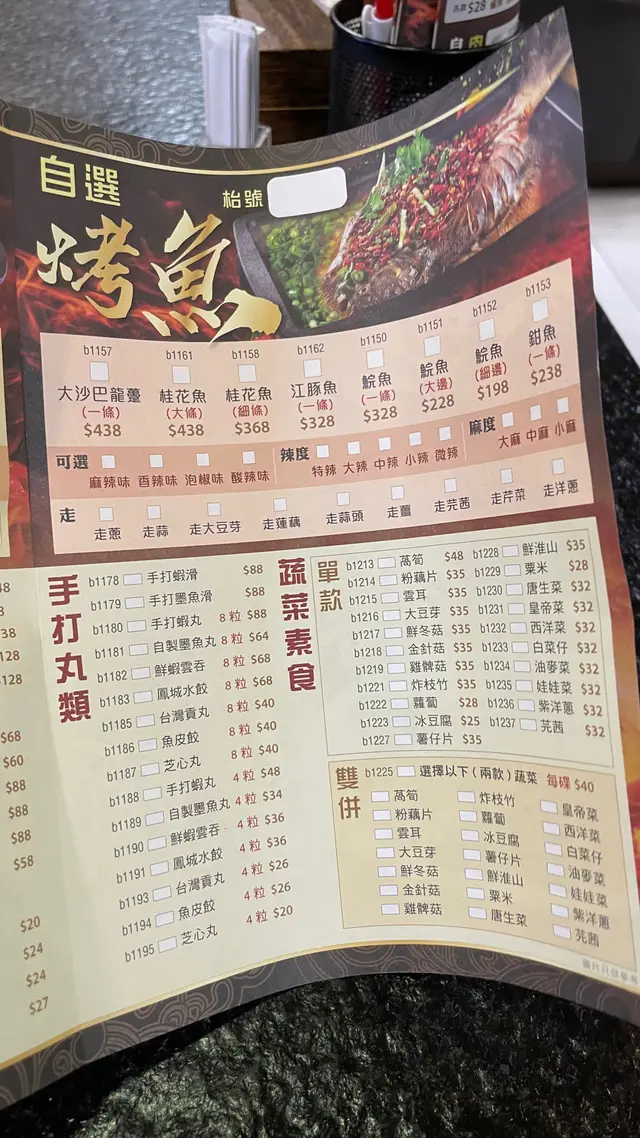 各款$28
自 肉
自選
枱號
烤魚
b1157 b1161 b1158 b1162 b1150 b1151 b1152 b1153
大沙巴龍躉 桂花魚 桂花魚 江豚魚 鯇魚 鯇魚 鯇魚 鉗魚
(一條) (大條) (細條) (一條) (一條) (大邊) (細邊) (一條)
$438 $438 $368 $328 $328 $228 $198 $238
可選 麻辣味 香辣味 泡椒味 酸辣味 辣度 特辣 大辣 中辣 小辣 微辣 麻度 大麻 中麻 小麻
走 走蔥 走蒜 走大豆芽 走蓮藕 走蒜頭 走薑 走芫茜 走芹菜 走洋蔥
手打丸類
b1178 手打蝦滑 $88
b1179 手打墨魚滑 $88
b1180 手打蝦丸 8粒 $88
b1181 自製墨魚丸 8粒 $64
b1182 鮮蝦雲吞 8粒 $68
b1183 鳳城水餃 8粒 $68
b1185 台灣貢丸 8粒 $40
b1186 魚皮餃 8粒 $40
b1187 芝心丸 8粒 $40
b1188 手打蝦丸 4粒 $48
b1189 自製墨魚丸 4粒 $34
b1190 鮮蝦雲吞 4粒 $36
b1191 鳳城水餃 4粒 $36
b1193 台灣貢丸 4粒 $26
b1194 魚皮餃 4粒 $26
b1195 芝心丸 4粒 $20
蔬菜素食
單款
b1213 萵筍 $48 b1228 鮮淮山 $35
b1214 粉藕片 $35 b1229 粟米 $28
b1215 雲耳 $35 b1230 唐生菜 $32
b1216 大豆芽 $35 b1231 皇帝菜 $32
b1217 鮮冬菇 $35 b1232 西洋菜 $32
b1218 金針菇 $35 b1233 白菜仔 $32
b1219 雞髀菇 $35 b1234 油麥菜 $32
b1221 炸枝竹 $35 b1235 娃娃菜 $32
b1222 蘿蔔 $28 b1236 紫洋蔥 $32
b1223 冰豆腐 $25 b1237 芫茜 $32
b1227 薯仔片 $35
雙併
b1225 選擇以下(兩款)蔬菜 每碟 $40
萵筍 炸枝竹 皇帝菜
粉藕片 蘿蔔 西洋菜
雲耳 冰豆腐 白菜仔
大豆芽 薯仔片 油麥菜
鮮冬菇 鮮淮山 娃娃菜
金針菇 粟米 紫洋蔥
雞髀菇 唐生菜 芫茜
圖片只供參考
48
8
38
128
128
$68
$60
$88
$88
$88
$58
$20
$24
$24
$27